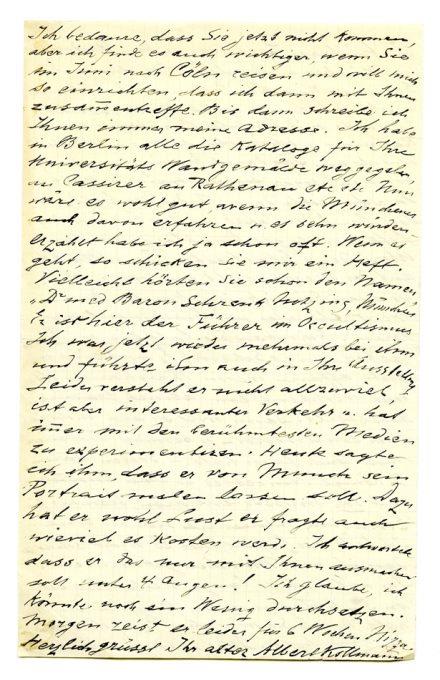 Ich bedaure, dass Sie jetzt nicht kommen,
aber ich finde es auch wichtiger, wenn Sie
im Juni nach Cöln reisen und will mich
so einrichten, dass ich dann mit Ihnen
zusammentreffe. Bis dann schreibe ich
Ihnen immer meine Adresse. Ich habe
in Berlin alle die Kataloge für Ihre
Universitäts Wandgemälde weggegeben
an Cassirer an Rathenau etc etc. Nun
wäre es wohl gut, wenn die Münchener
auch davon erfahren u. es sehn würden
erzählt habe ich ja schon oft. Wenn es
geht, so schicken Sie mir ein Heft.
Vielleicht hörten Sie schon den Namen
"Dr med Baron Schrenk Notzing, München
Er ist hier der Führer im Occultismus
Ich war jetzt wieder mehrmals bei ihm
und führte ihn auch in Ihre Ausstellung
Leider versteht er nicht allzuviel,
ist aber interessanter Verkehr u. hat
immer mit den berühmtesten Medien
zu experimentiren. Heute sagte
ich ihm, dass er von Munch sein
Portrait malen lassen soll. Dazu
hat er wohl Lust er fragte auch
wieviel es kosten werde. Ich antwortete
dass er das nur mit Ihnen ausmachen
soll unter 4 Augen! Ich glaube, ich
könnte noch ein Wenig durchsetzen.
Morgen reist er leider für 6 Wochen Nizza.
Herzlich grüsst Ihr alter Albert Kollmann